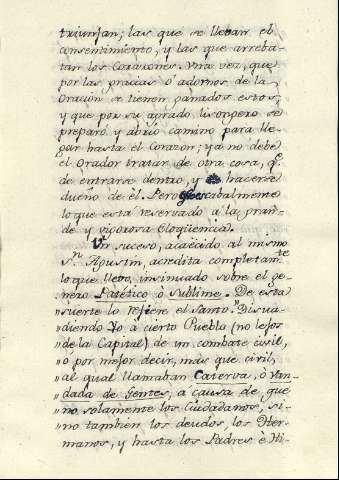 triunfan; las que se llevan el
consentimiento, y las que arreba-
tan los Corazones. Una vez, que
por las gracias ò adornos de la
Oración se tienen ganados estos,
y que por su agrado lisongero se
preparó y abrió camino para lle-
gar hasta el Corazon; ya no debe
el Orador tratar de otra cosa, qe.
de entrarse dentro, y hacerse
dueño de èl. Pero es cabalmente
lo que está reservado a la gran-
de y vigorosa Eloqüencia.
Un suceso, acaecido al mismo
Sn. Agustin, acredita completamte.
lo que llevo, insinuado sobre el ge-
nero Patético ò Sublime. De esta
suerte lo refiere el Santo. "Disua-
"diendo Yo a cierto Pueblo (no lejos
"de la Capital) de un combate civil,
"o por mejor decir, mas que civil,
"al qual llamaban Caterva, ò Van-
"dada de Gentes, a causa de que
"no solamente los Ciudadanos, si-
"no tambien los deudos, los Her-
"manos, y hasta los Padres è Hi-